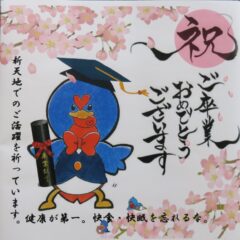 祝
ご卒業
おめでとう
ございます
新天地でのご活躍を祈っています。
健康が第一。快食・快眠を忘れるな。